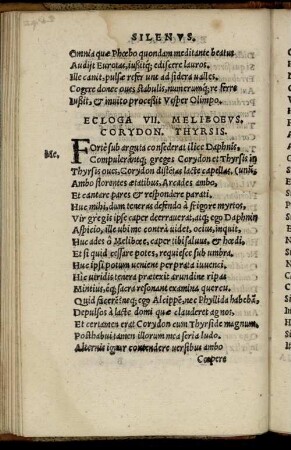 SILENVS.
Omnia quæ Phœbo quondam meditante beatus
Audijt Eurotas, iußitq; ediscere lauros,
Ille canit, pulsæ referunt ad sidera ualles.
Cogere donec oues stabulis, numerumq; referre
Iußit, & inuito processit Vesper Olimpo.
ECLOGA VII. MELIBOEVS,
CORYDON. THYRSIS.
Me,
FOrtè sub arguta consederat ilice Daphnis,
Compulerantq; greges Corydon et Thyrsis in
Thyrsis oues, Corydon distētas lacte capellas, (unū,
Ambo florentes ætatibus, Arcades ambo,
Et cantare pares & respondere parati.
Huc mihi, dum teneras defendo à frigore myrtos,
Vir gregis ipse caper deerrauerat, atq; ego Daphnin
Aspicio, ille ubi me contrà uidet, ocius, inquit,
Huc ades ô Melibœe, caper tibi saluus, & hœdi,
Et si quid cessare potes, requiesce sub umbra.
Huc ipsi potum uenient per prata iuuenci,
Hic uiridis tenera prætexit arundine ripas
Mintius, éq; sacra resonant examina quercu.
Quid facerem? neq; ego Alcippē, nec Phyllida habebā,
Depulsos à lacte domi quæ clauderet agnos,
Et certamen erat Corydon cum Thyrside magnum,
Posthabui tamen illorum mea seria ludo.
Alternis igitur contendere uersibus ambo
Cœpere